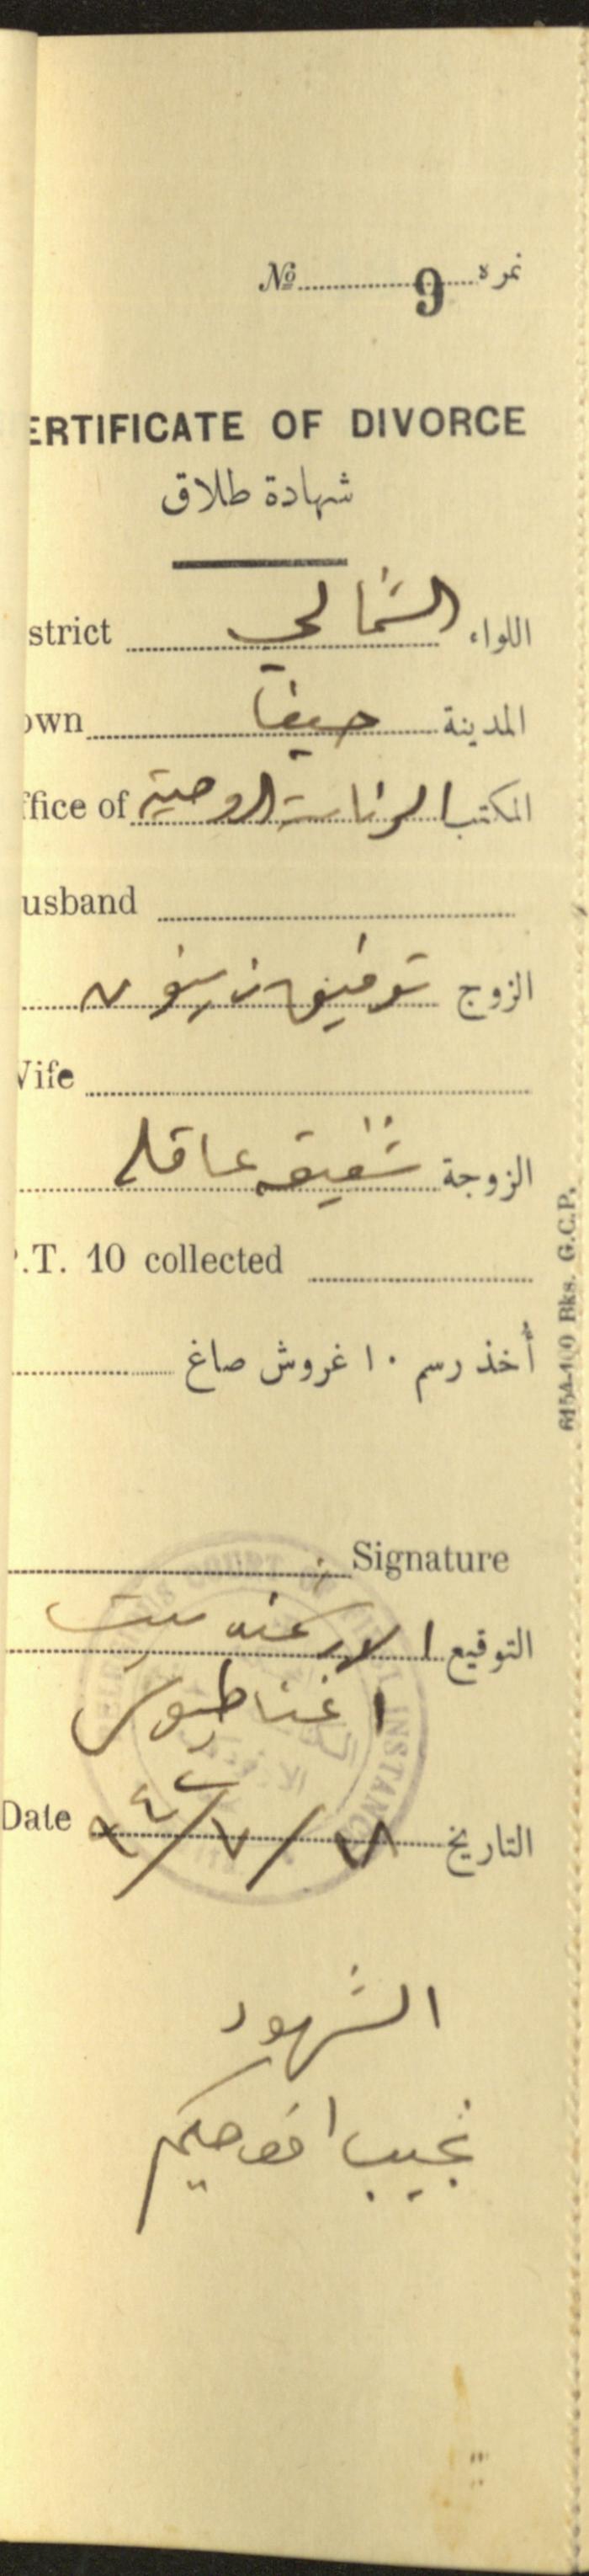 № 9 نمره
ERTIFICATE OF DIVORCE
شهادة طلاق
strict الشمالي اللواء
own حيفا المدينة
ffice of الرئاسة الروحية المكتب
usband
توفيق زيتون الزوج
Vife
شفيقه عاقله الزوجة
.T. 10 collected
أخذ رسم ١٠ غروش صاغ
Signature
التوقيع
اغناطيوس
Date ٧ / ٧ / التاريخ
الشهود
نجيب حكيم
6154-100 Bks. G.C.P.